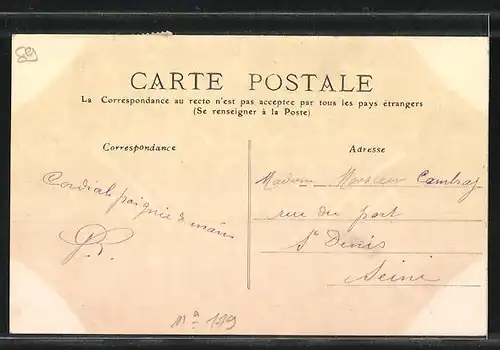 89
CARTE POSTALE
La Correspondance au recto n'est pas acceptée par tous les pays étrangers
(Se renseigner à la Poste)
Correspondance
Adresse
Cordiale poignée de main
Madame Cambray
rue du port
St Denis
Seine